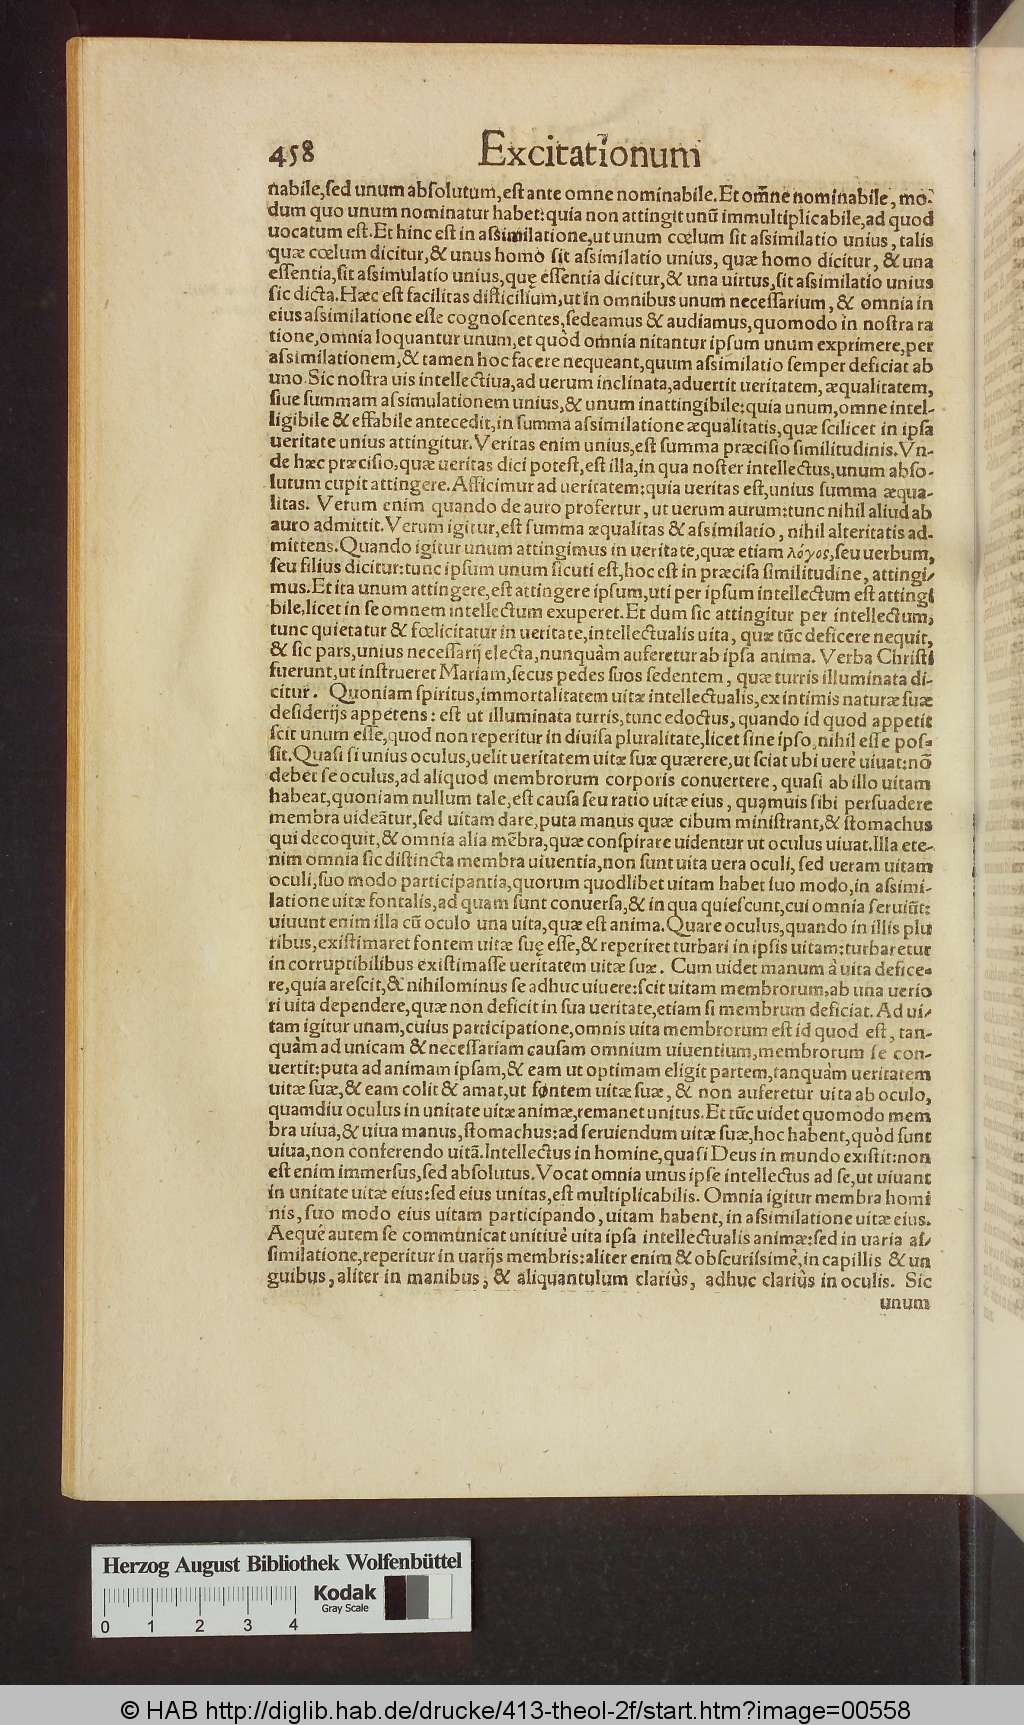 458 Excitationum
nabile, sed unum absolutum, est ante omne nominabile. Et om̃ne nominabile, mo-
dum quo unum nominatur habet: quia non attingit unũ immultiplicabile, ad quod
uocatum est. Et hinc est in assimilatione, ut unum cœlum sit assimilatio unius, talis
quæ cœlum dicitur, & unus homo sit assimilatio unius, quæ homo dicitur, & una
essentia, sit assimulatio unius, quę essentia dicitur, & una uirtus, sit assimilatio unius
sic dicta. Hæc est facilitas difficilium, ut in omnibus unum necessarium, & omnia in
eius assimilatione esse cognoscentes, sedeamus & audiamus, quomodo in nostra ra
tione, omnia loquantur unum, et quòd omnia nitantur ipsum unum exprimere, per
assimilationem, & tamen hoc facere nequeant, quum assimilatio semper deficiat ab
uno. Sic nostra uis intellectiua, ad uerum inclinata, aduertit ueritatem, æqualitatem,
siue summam assimulationem unius, & unum inattingibile: quia unum, omne intel-
ligibile & effabile antecedit, in summa assimilatione æqualitatis, quæ scilicet in ipsa
ueritate unius attingitur. Veritas enim unius, est summa præcisio similitudinis. Vn-
de hæc præcisio, quæ ueritas dici potest, est illa, in qua noster intellectus, unum abso-
lutum cupit attingere. Afficimur ad ueritatem: quia ueritas est, unius summa æqua-
litas. Verum enim quando de auro profertur, ut uerum aurum: tunc nihil aliud ab
auro admittit. Verum igitur, est summa æqualitas & assimilatio, nihil alteritatis ad-
mittens. Quando igitur unum attingimus in ueritate, quæ etiam λόγος, seu uerbum,
seu filius dicitur: tunc ipsum unum sicuti est, hoc est in præcisa similitudine, attingi-
mus. Et ita unum attingere, est attingere ipsum, uti per ipsum intellectum est attingi
bile, licet in se omnem intellectum exuperet. Et dum sic attingitur per intellectum,
tunc quietatur & fœlicitatur in ueritate, intellectualis uita, quæ tũc deficere nequit,
& sic pars, unius necessarij electa, nunquàm auferetur ab ipsa anima. Verba Christi
fuerunt, ut instrueret Mariam, secus pedes suos sedentem, quæ turris illuminata di-
citur. Quoniam spiritus, immortalitatem uitæ intellectualis, ex intimis naturæ suæ
desiderijs appetens: est ut illuminata turris, tunc edoctus, quando id quod appetit
scit unum esse, quod non reperitur in diuisa pluralitate, licet sine ipso, nihil esse pos-
sit. Quasi si unius oculus, uelit ueritatem uitæ suæ quærere, ut sciat ubi uerè uiuat: nõ
debet se oculus, ad aliquod membrorum corporis conuertere, quasi ab illo uitam
habeat, quoniam nullum tale, est causa seu ratio uitæ eius, quamuis sibi persuadere
membra uideãtur, sed uitam dare, puta manus quæ cibum ministrant, & stomachus
qui decoquit, & omnia alia mẽbra, quæ conspirare uidentur ut oculus uiuat. Illa ete-
nim omnia sic distincta membra uiuentia, non sunt uita uera oculi, sed ueram uitam
oculi, suo modo participantia, quorum quodlibet uitam habet suo modo, in assimi-
latione uitæ fontalis, ad quam sunt conuersa, & in qua quiescunt, cui omnia seruiũt:
uiuunt enim illa cũ oculo una uita, quæ est anima. Quare oculus, quando in illis plu
ribus, existimaret fontem uitæ suę esse, & reperiret turbari in ipsis uitam: turbaretur
in corruptibilibus existimasse ueritatem uitæ suæ. Cum uidet manum à uita defice-
re, quia arescit, & nihilominus se adhuc uiuere: scit uitam membrorum, ab una uerio
ri uita dependere, quæ non deficit in sua ueritate, etiam si membrum deficiat. Ad ui-
tam igitur unam, cuius participatione, omnis uita membrorum est id quod est, tan-
quàm ad unicam & necessariam causam omnium uiuentium, membrorum se con-
uertit: puta ad animam ipsam, & eam ut optimam eligit partem, tanquàm ueritatem
uitæ suæ, & eam colit & amat, ut fontem uitæ suæ, & non auferetur uita ab oculo,
quamdiu oculus in unitate uitæ animæ, remanet unitus. Et tũc uidet quomodo mem
bra uiua, & uiua manus, stomachus: ad seruiendum uitæ suæ, hoc habent, quòd sunt
uiua, non conferendo uitã. Intellectus in homine, quasi Deus in mundo existit: non
est enim immersus, sed absolutus. Vocat omnia unus ipse intellectus ad se, ut uiuant
in unitate uitæ eius: sed eius unitas, est multiplicabilis. Omnia igitur membra homi
nis, suo modo eius uitam participando, uitam habent, in assimilatione uitæ eius.
Aequè autem se communicat unitiuè uita ipsa intellectualis animæ: sed in uaria as-
similatione, reperitur in uarijs membris: aliter enim & obscurissimè, in capillis & un
guibus, aliter in manibus, & aliquantulum clariùs, adhuc clariùs in oculis. Sic
unum
Herzog August Bibliothek Wolfenbüttel
Kodak
Gray Scale
0 1 2 3 4
© HAB http://diglib.hab.de/drucke/413-theol-2f/start.htm?image=00558